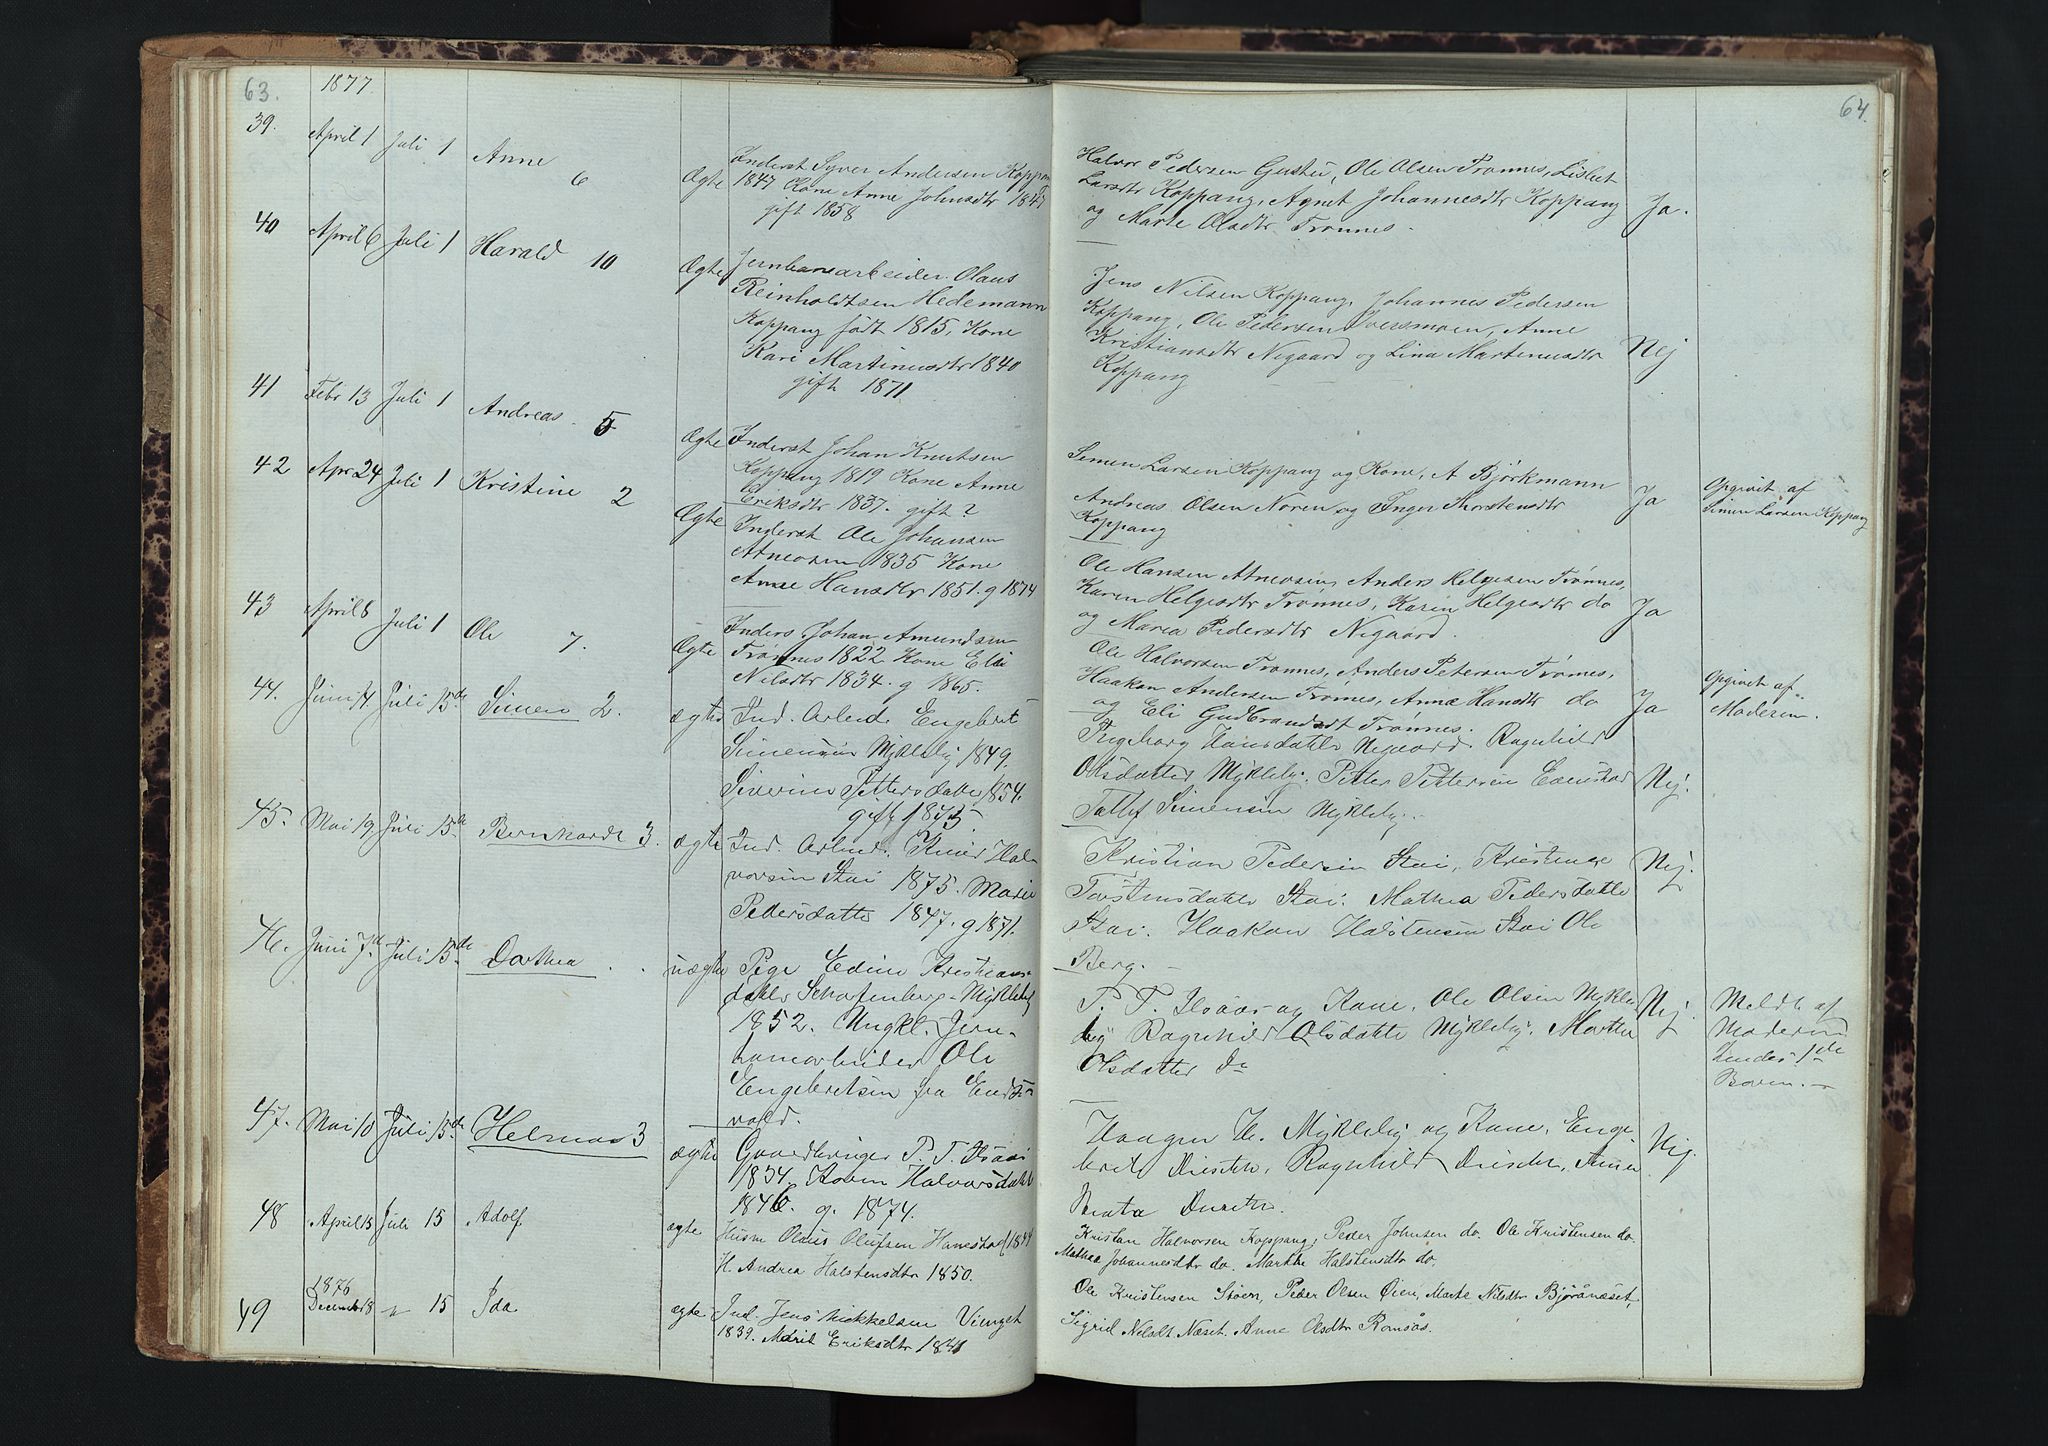 63.
1877
39. April 1 Juli 1 Anne 6 Ægte Inderst Syver Andersen Koppang
1847 Kone Anne Johnsdtr 1847
gift 1858
40 April 6 Juli 1 Harald 10 Ægte Jernbanearbeider Olaus
Reinholdtsen Hedemann
Koppang født 1815, Kone
Kari Martinusdtr 1840
gift 1871
41 Febr 13 Juli 1 Andreas 5 Ægte Inderst Johan Knutsen
Koppang 1819 Kone Anne
Eriksdtr 1837. gift ?
42 Apr 24 Juli 1 Kristine 2 Ægte Inderst Ole Johansen
Atneosen 1835 Kone
Anne Hansdtr 1851. g 1874
43 April 8 Juli 1 Ole 7. Ægte Inders. Johan Amundsen
Trønnes 1822 Kone Eli
Nilsdtr 1834. g 1865.
44. Juni 14 Juli 15de Simen 2. ægte Ind. Arbeid. Engebret
Simensen Mykleby 1849.
Siverine Pettersdatter 1854.
gift 1875
45. Mai 19 Juli 15de Bernhardt 3. ægte Ind. Arbeid. Hal-
vorsen Stai 1875. Marie
Pedersdatter 1847. g 1871.
46. Juni 7d. Juli 15de Dorthea uægte Pige Edine Kristians-
datter Scharfenberg - Myklebÿ
1852. Ungkl. Jern-
banearbeider Ole
Engebretsen fra
vold.
47. Mai 10 Juli 15de Helmas 3 ægte Gaardbruger P. T. Ilsaas
1834. Halvorsdatter
1846. g. 1874.
48 April 15 Juli 15 Adolf ægte Husm Olaus Olufsen Hanestad (1844
H. Andrea Halstensdtr 1850.
1876
49 December 18 " 15 Ida ægte Ind. Jens Mikkelsen Vinget
1839. Marit Eriksdtr 1841
64.
Halvor Pedersen Gustu, Ole Olsen Trønnes, Lisbet
Larsdtr Koppang, Agnet Johannesdtr Koppang Ja.
og Marte Olsdtr Trønnes.
Jens Nilsen Koppang, Johannes Pedersen
Koppang, Ole Pedersen Iversmoen, Anne
Kristiansdtr Nygaard og Lina Martinusdtr Nej
Koppang
Simen Larsen Koppang og Kone, A Bjørkmann
Andreas Olsen Noren og Inger Thorstensdtr Ja Opgivet af
Koppang Simen Larsen Koppang
Ole Hansen Atneosen, Anders Helgesen Trønnes,
Karen Helgesdtr Trønnes, Karin Helgesdtr do Ja
og Maria Pedersdtr Nygaard.
Ole Halvorsen Trønnes, Anders Petersen Trønnes,
Haakon Andersen Trønnes, Anne Hansdtr do Ja Opgivet af
og Eli Gudbrandsdt Trønnes. Moderen.
Ingeborg Hansdatter Nygaard. Ragnhild
Olsdatter Myklebÿ. Petter Pettersen Evenstad Nej.
Simensen Myklebÿ.
Kristian Pedersen Stai, Kristine Nej.
Torstensdatter Stai. Mathea Pedersdatter
Stai. Haakon Halstensen Stai Ole
Berg.
P. T. Ilsaas og Kone. Ole Olsen Mykle- Nej Meldt af
by Ragnhild Olsdatter Myklebÿ. Marthe Moderen
Olsdatter Do hendes 1de
Barn.
Haagen H. Myklebÿ og Kone, Enge-
bret Ragnhild Nej.
Beata
Kristian Halvorsen Koppang, Peder Johnsen do. Ole Kristensen do.
Mathea Johannesdtr do. Marthe Halstensdtr do.
Ole Kristensen Støen, Peder Olsen Øien, Marte Nilsdtr Bjøråneset,
Sigrid Nilsdt. Næset. Anne Olsdtr Romsås.